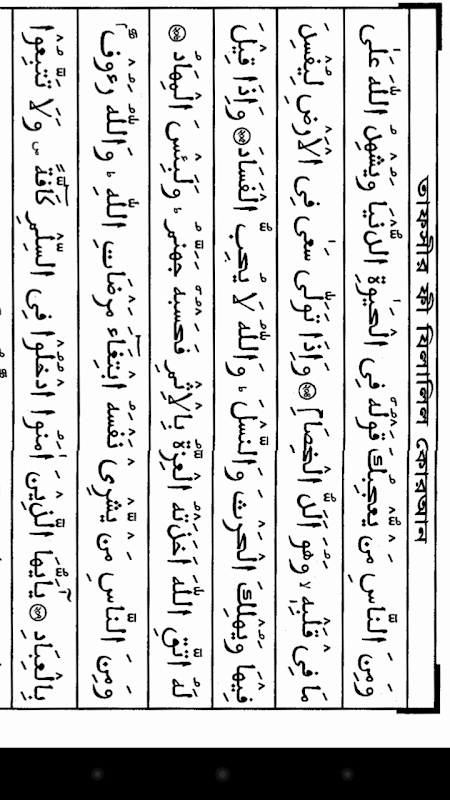 তাফসীর ফী যিলালিল কোরআন
وَمِنَ النَّاسِ مَنْ يُّعْجِبُكَ قَوْلُهٗ فِى الْحَيٰوةِ الدُّنْيَا وَيُشْهِدُ اللّٰهَ عَلٰى
مَا فِىْ قَلْبِهٖ ۙ وَهُوَ اَلَدُّ الْخِصَامِ ۝ وَاِذَا تَوَلّٰى سَعٰى فِى الْاَرْضِ لِيُفْسِدَ
فِيْهَا وَيُهْلِكَ الْحَرْثَ وَالنَّسْلَ ؕ وَاللّٰهُ لَا يُحِبُّ الْفَسَادَ ۝ وَاِذَا قِيْلَ
لَهُ اتَّقِ اللّٰهَ اَخَذَتْهُ الْعِزَّةُ بِالْاِثْمِ فَحَسْبُهٗ جَهَنَّمُ ؕ وَلَبِئْسَ الْمِهَادُ ۝
وَمِنَ النَّاسِ مَنْ يَّشْرِىْ نَفْسَهُ ابْتِغَآءَ مَرْضَاتِ اللّٰهِ ؕ وَاللّٰهُ رَءُوْفٌۢ
بِالْعِبَادِ ۝ يٰۤاَيُّهَا الَّذِيْنَ اٰمَنُوا ادْخُلُوْا فِى السِّلْمِ كَآفَّةً ۪ وَلَا تَتَّبِعُوْا